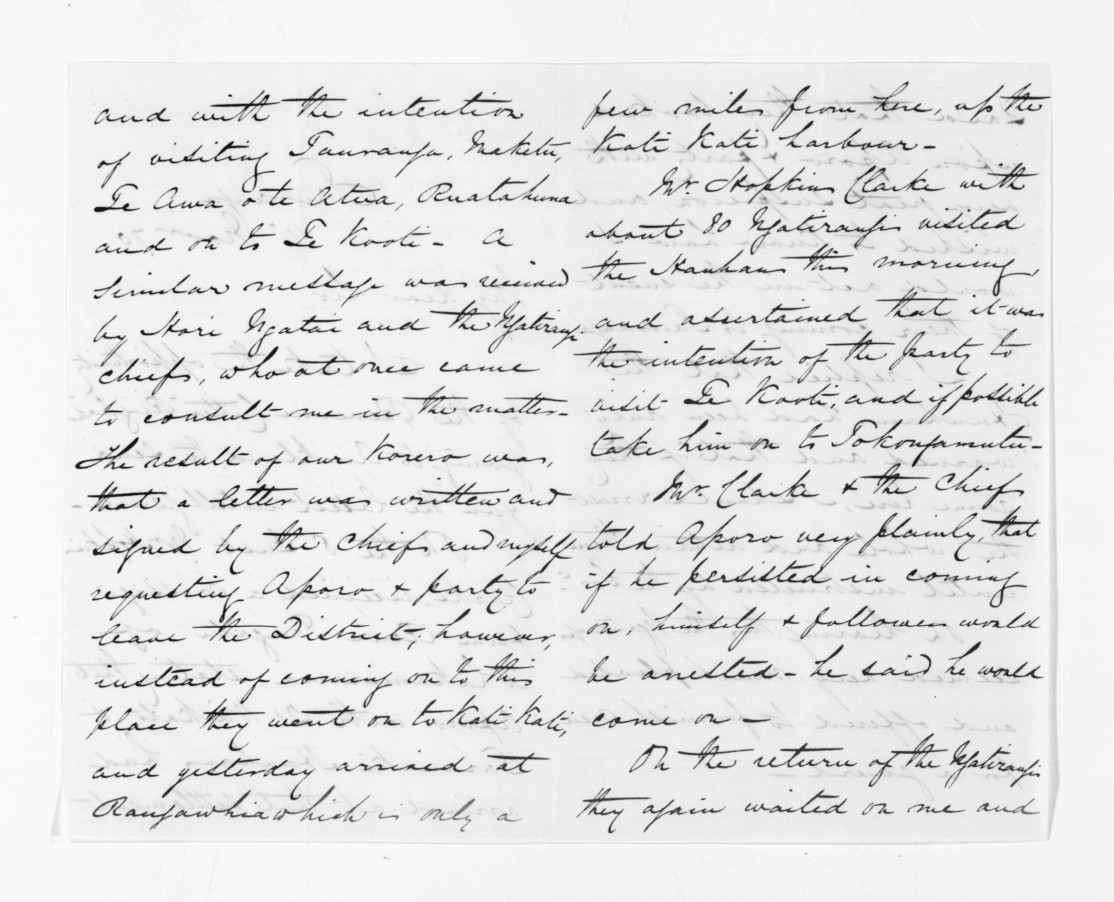 and with the intention
of visiting Tauranga, Maketu,
Te Awa o te Atua, Ruatahuna
and on to Te Kooti - A
similar message was received
by Hori Ngatai and the Ngatirangi
chiefs, who at once came
to consult me in the matter -
The result of our Korero was,
that a letter was written and
signed by the chiefs and myself
requesting Aporo & party to
leave the District; however,
instead of coming on to this
place they went on to Kati Kati,
and yesterday arrived at
Rangawhia which is only a
few miles from here, up the
Kati Kati harbour -
Mr. Hopkins Clarke with
about 80 Ngatirangi visited
the Hauhaus this morning,
and assertained that it was
the intention of the party to
visit Te Kooti, and if possible
take him on to Tokangamutu -
Mr. Clarke & the Chiefs
told Aporo very plainly, that
if he persisted in coming
on, himself & followers would
be arrested - he said he would
come on -
On the return of the Ngatirangi
they again waited on me and